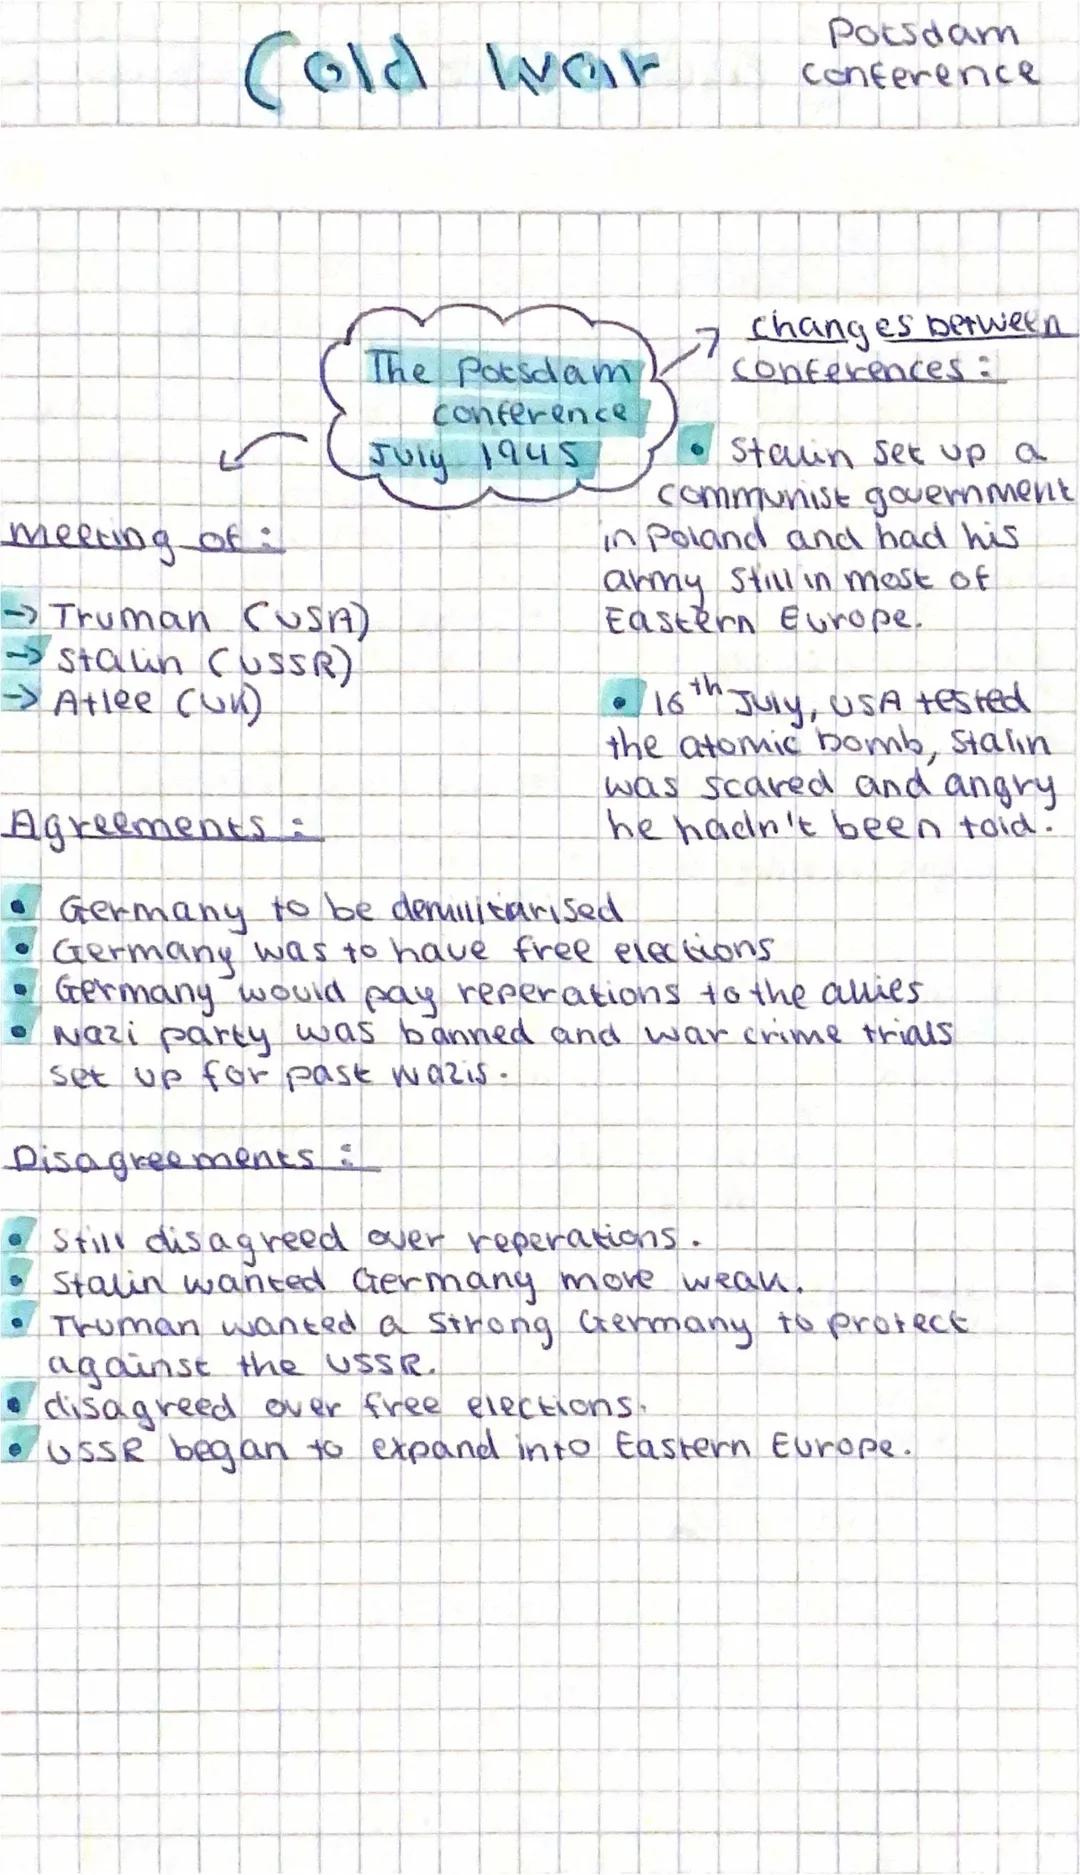 Cold War
Potsdam
conference
The Potsdam
conference
July 1945
changes between
conferences:
• Stalin set up a
communist government
in Poland and had his
army still in most of
Eastern Europe.
• 16th July, USA tested
the atomic bomb, Stalin
was scared and angry
he hadn't been told.
meeting of:
→ Truman (USA)
→ Stalin (USSR)
→ Atlee (UK)
Agreements:
• Germany to be demilitarised
• Germany was to have free elections
• Germany would pay reperations to the allies
• Nazi party was banned and war crime trials
set up for past Nazis.
Disagreements:
• Still disagreed over reperations.
• Stalin wanted Germany more weak.
• Truman wanted a strong Germany to protect
against the USSR.
• disagreed over free elections.
• USSR began to expand into Eastern Europe.